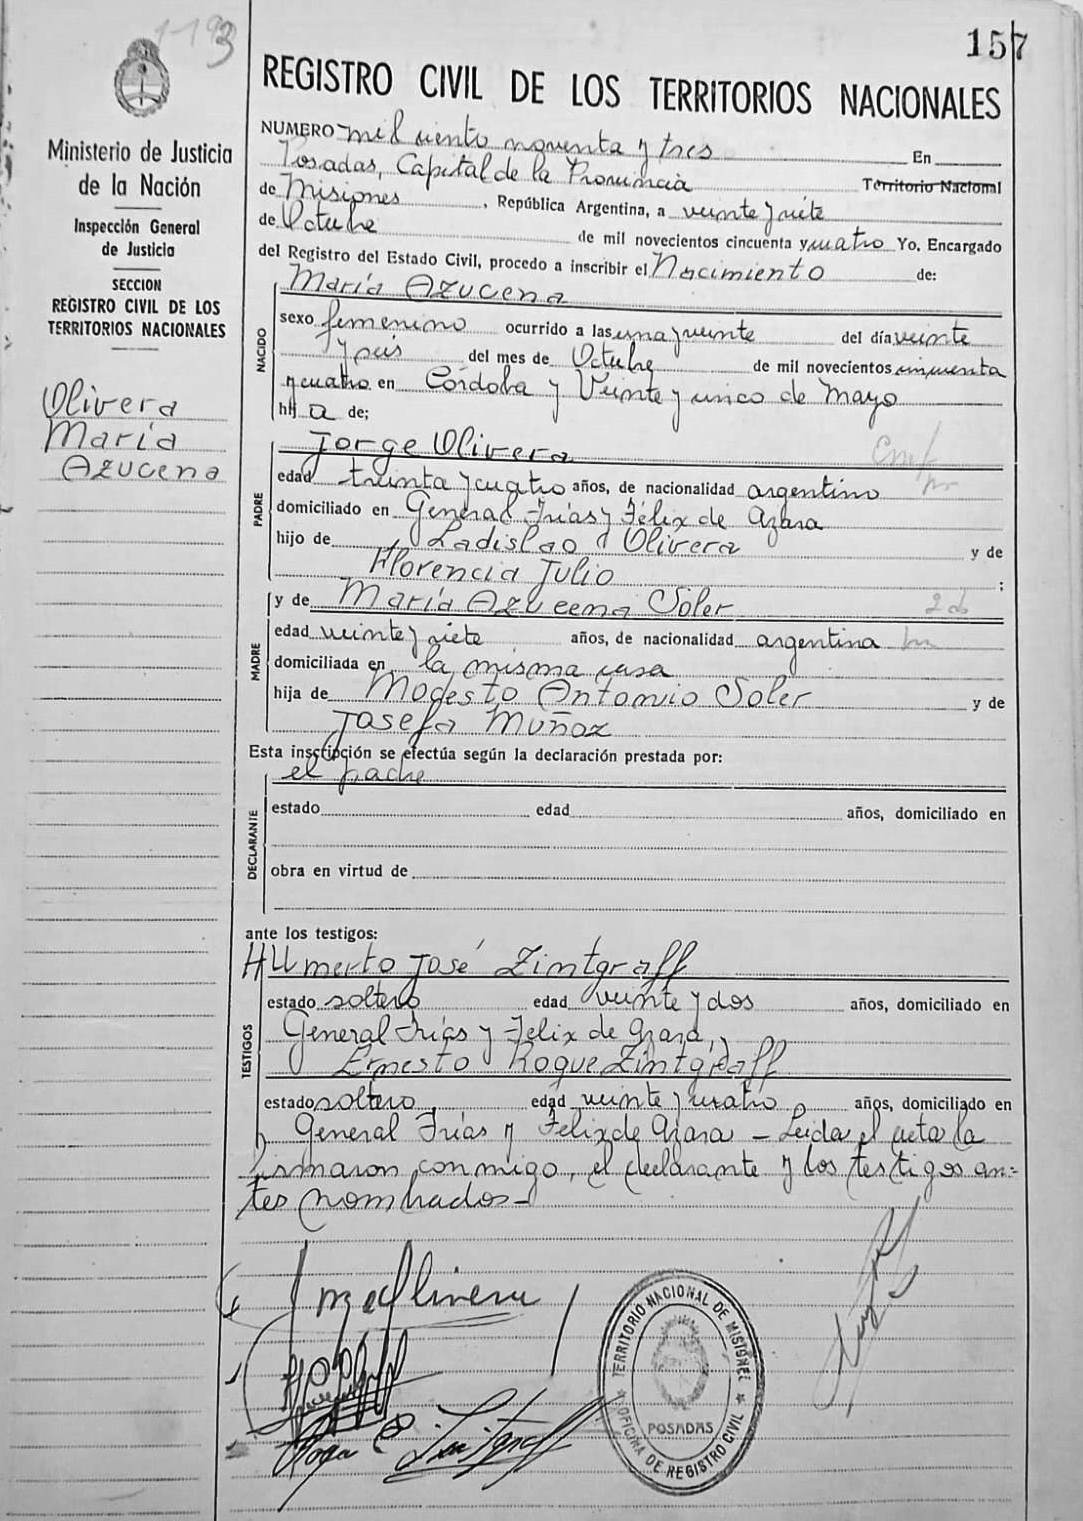 1193
157
REGISTRO CIVIL DE LOS TERRITORIOS NACIONALES
Ministerio de Justicia
de la Nación
Inspección General
de Justicia
SECCION
REGISTRO CIVIL DE LOS
TERRITORIOS NACIONALES
Olivera
María
Azucena
NUMERO mil ciento noventa y tres En
Posadas, Capital de la Provincia Territorio Nacional
de Misiones, República Argentina, a veinte y siete
de Octubre de mil novecientos cincuenta y cuatro Yo, Encargado
del Registro del Estado Civil, procedo a inscribir el Nacimiento de:
NACIDO
María Azucena
sexo femenino ocurrido a las una y veinte del día veinte
y seis del mes de Octubre de mil novecientos cincuenta
y cuatro en Córdoba y Veinte y cinco de Mayo
hij a de;
PADRE
Jorge Olivera
edad treinta y cuatro años, de nacionalidad argentino
domiciliado en General Frías y Félix de Azara
hijo de Ladislao Olivera y de
Florencia Julio ;
MADRE
y de María Azucena Soler
edad veinte y siete años, de nacionalidad argentina
domiciliada en la misma casa
hija de Modesto Antonio Soler y de
Josefa Muñoz
Esta inscripción se efectúa según la declaración prestada por:
el padre
DECLARANTE
estado edad años, domiciliado en
obra en virtud de
ante los testigos:
TESTIGOS
HUmerto José Zintgraff
estado soltero edad veinte y dos años, domiciliado en
General Frías y Felix de Azara,
Ernesto Roque Zintgraff
estado soltero edad veinte y cuatro años, domiciliado en
General Frías y Felix de Azara - Leida el acta la
firmaron conmigo, el declarante y los testigos an=
tes nombrados-
Jorge Olivera
TERRITORIO NACIONAL DE MISIONES
POSADAS
OFICINA DE REGISTRO CIVIL